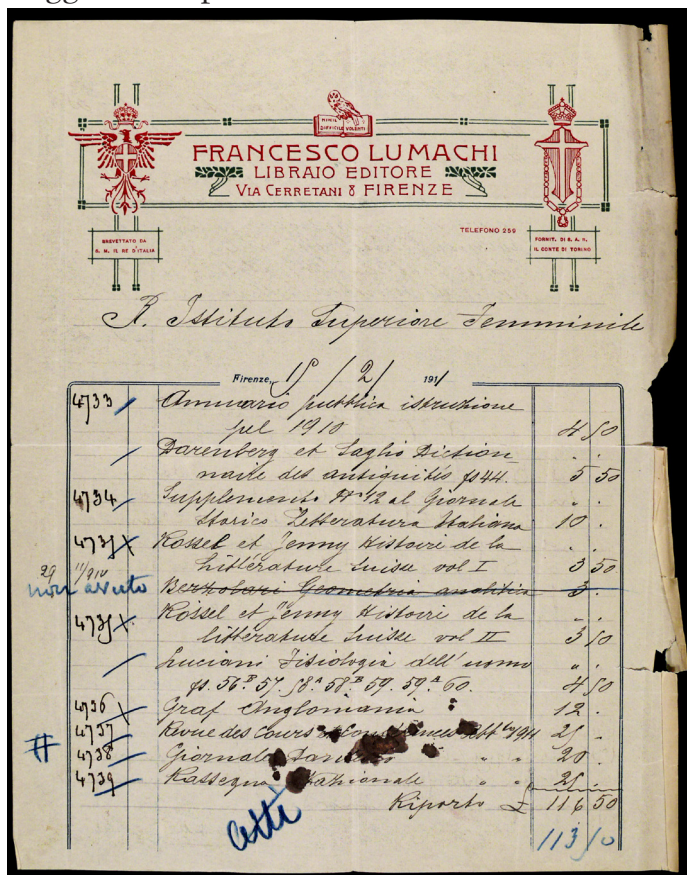 NIHIL DIFFICILE VOLENTI
FRANCESCO LUMACHI
LIBRAIO EDITORE
VIA CERRETANI 8 FIRENZE
TELEFONO 259
BREVETTATO DA
S. M. IL RE D'ITALIA
FORNIT. DI S. A. R.
IL CONTE DI TORINO
R. Istituto Superiore Femminile
Firenze, 15/2/1911
4733 Annuario pubblica istruzione
pel 1910 4 50
Darenberg et Saglio Diction-
naire des antiquités fs 44. 5 50
4734 Supplemento Nº 12 al Giornale
Storico Letteratura Italiana 10 .
4735 Rossel et Jenny Histoire de la
littérature suisse vol I 3 50
29 non avuto Berzolari Geometria analitica 3 .
4735 Rossel et Jenny Histoire de la
littérature suisse vol II 3 50
Luciani Fisiologia dell'uomo
fs. 56.B 57. 58.A 58.B 59. 59.A 60. 4 50
4736 Graf Anglomania " 12 .
# 4737 Revue des Cours et Conférences 1911 25 .
4738 Giornale " " 20 .
4739 Rassegna Nazionale " " 25 .
Riporto £ 116 50
113 50